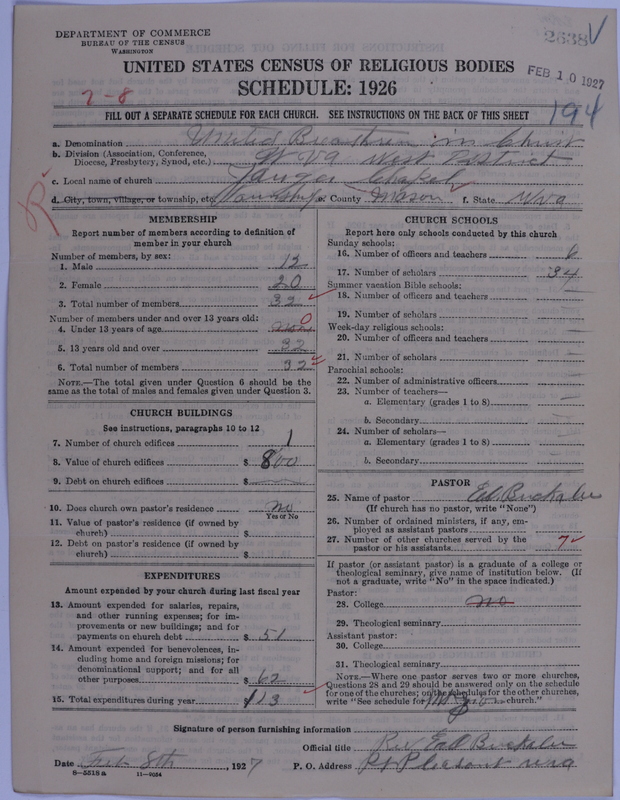 DEPARTMENT OF COMMERCE
BUREAU OF THE CENSUS
WASHINGTON
2638
UNITED STATES CENSUS OF RELIGIOUS BODIES
FEB 10 1927
SCHEDULE: 1926
7-8
194
FILL OUT A SEPARATE SCHEDULE FOR EACH CHURCH. SEE INSTRUCTIONS ON THE BACK OF THIS SHEET
a. Denomination United Breathren in Christ
b. Division (Association, Conference, Diocese, Presbytery, Synod, etc.) W Va West District
c. Local name of church Chapel
d. City, town, village, or township, etc. Township e. County Mason f. State W Va
MEMBERSHIP
Report number of members according to definition of
member in your church
Number of members, by sex:
1. Male 12
2. Female 20
3. Total number of members 32
Number of members under and over 13 years old:
4. Under 13 years of age none 0
5. 13 years old and over 32
6. Total number of members 32
NOTE.—The total given under Question 6 should be the
same as the total of males and females given under Question 3.
CHURCH BUILDINGS
See instructions, paragraphs 10 to 12
7. Number of church edifices 1
8. Value of church edifices $ 800
9. Debt on church edifices $
10. Does church own pastor's residence No
Yes or No
11. Value of pastor's residence (if owned by
church) $
12. Debt on pastor's residence (if owned by
church) $
EXPENDITURES
Amount expended by your church during last fiscal year
13. Amount expended for salaries, repairs,
and other running expenses; for im-
provements or new buildings; and for
payments on church debt $ 51
14. Amount expended for benevolences, in-
cluding home and foreign missions; for
denominational support; and for all
other purposes $ 62
15. Total expenditures during year $ 113
CHURCH SCHOOLS
Report here only schools conducted by this church
Sunday schools:
16. Number of officers and teachers 6
17. Number of scholars 34
Summer vacation Bible schools:
18. Number of officers and teachers
19. Number of scholars
Week-day religious schools:
20. Number of officers and teachers
21. Number of scholars
Parochial schools:
22. Number of administrative officers
23. Number of teachers—
a. Elementary (grades 1 to 8)
b. Secondary
24. Number of scholars—
a. Elementary (grades 1 to 8)
b. Secondary
PASTOR
25. Name of pastor Ed.
(If church has no pastor, write "None")
26. Number of ordained ministers, if any, em-
ployed as assistant pastors
27. Number of other churches served by the
pastor or his assistants 7
If pastor (or assistant pastor) is a graduate of a college or
theological seminary, give name of institution below. (If
not a graduate, write "No" in the space indicated.)
Pastor:
28. College no
29. Theological seminary
Assistant pastor:
30. College
31. Theological seminary
NOTE.—Where one pastor serves two or more churches,
Questions 28 and 29 should be answered only on the schedule
for one of the churches; on the schedules for the other churches,
write "See schedule for Mt Zion church."
Signature of person furnishing information
Official title Rev Ed
Date Feb 8th, 1927 P. O. Address Pt Pleasant W Va
8-5518a 11-9054